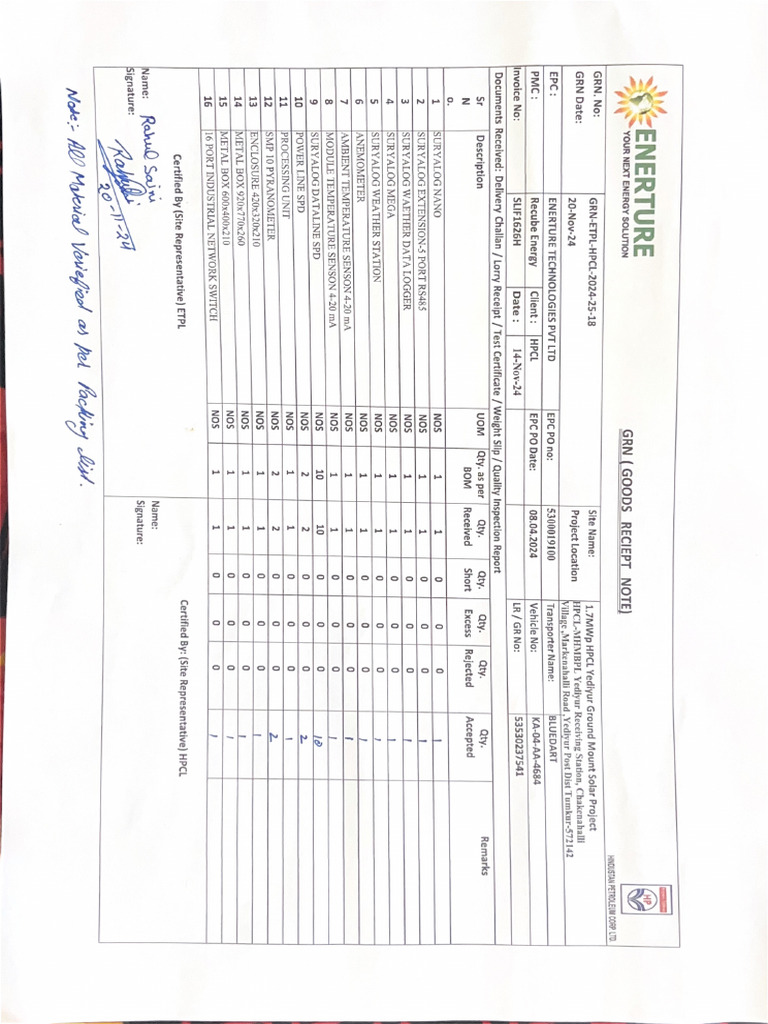 ENERTURE
YOUR NEXT ENERGY SOLUTION
GRN ( GOODS RECIEPT NOTE)
HP
HINDUSTAN PETROLEUM CORP. LTD.
GRN. No: GRN-ETPL-HPCL-2024-25-18 Site Name: 1.7MWp HPCL Yediyur Ground Mount Solar Project
GRN Date: 20-Nov-24 Project Location HPCL-MHMBPL Yediyur Receiving Station, Chakenahalli
Village ,Markenahalli Road ,Yediyur Post Dist Tumkur-572142
EPC : ENERTURE TECHNOLOGIES PVT LTD EPC PO no: 5300019100 Transporter Name: BLUEDART
PMC : Recube Energy Client : HPCL EPC PO Date: 08.04.2024 Vehicle No: KA-04-AA-4684
Invoice No: SLIF1626H Date : 14-Nov-24 LR / GR No: 53530237541
Documents Received: Delivery Challan / Lorry Receipt / Test Certificate / Weight Slip / Quality Inspection Report
Sr N o. Description UOM Qty. as per BOM Qty. Received Qty. Short Qty. Excess Qty. Rejected Qty. Accepted Remarks
1 SURYALOG NANO NOS 1 1 0 0 0 1
2 SURYALOG EXTENSION-5 PORT RS485 NOS 1 1 0 0 0 1
3 SURYALOG WAETHER DATA LOGGER NOS 1 1 0 0 0 1
4 SURYALOG MEGA NOS 1 1 0 0 0 1
5 SURYALOG WEATHER STATION NOS 1 1 0 0 0 1
6 ANEMOMETER NOS 1 1 0 0 0 1
7 AMBIENT TEMPERATURE SENSON 4-20 mA NOS 1 1 0 0 0 1
8 MODULE TEMPERATURE SENSON 4-20 mA NOS 1 1 0 0 0 1
9 SURYALOG DATALINE SPD NOS 10 10 0 0 0 10
10 POWER LINE SPD NOS 2 2 0 0 0 2
11 PROCESSING UNIT NOS 1 1 0 0 0 1
12 SMP 10 PYRANOMETER NOS 2 2 0 0 0 2
13 ENCLOSURE 420x320x210 NOS 1 1 0 0 0 1
14 METAL BOX 920x770x260 NOS 1 1 0 0 0 1
15 METAL BOX 600x400x210 NOS 1 1 0 0 0 1
16 16 PORT INDUSTRIAL NETWORK SWITCH NOS 1 1 0 0 0 1
Certified By (Site Representative) ETPL Certified By: (Site Representative) HPCL
Name: Rahul Saini Name:
Signature: Rahul Signature:
20-11-24
Note:- All Material Variefied as per Packing list.